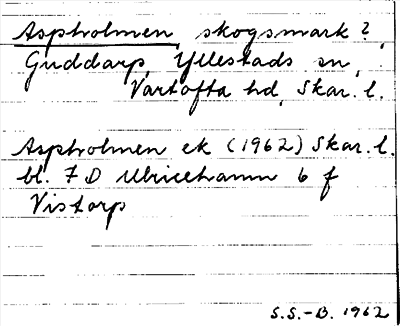 Aspholmen, skogsmark?,
Guddarp, Yllestads sn,
Vartofta hd, Skar. l.
Aspholmen ek (1962) Skar. l.
bl. 7 D Ulricehamn 6 f
Vistorp
S.S.-B. 1962